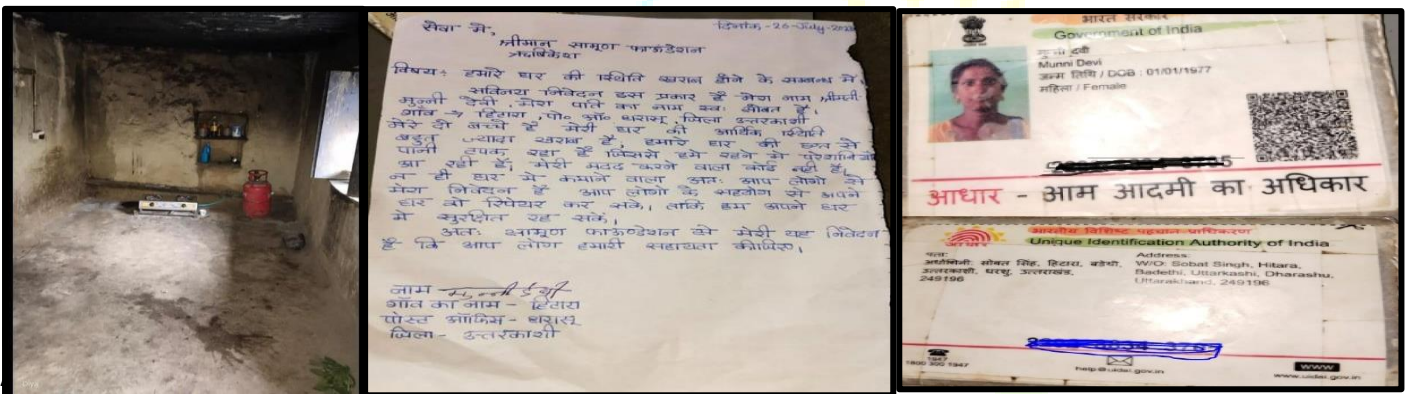 सेवा में,
दिनांक - 26-July-202
श्रीमान सामूण फाऊंडेशन
ऋषिकेश
विषय:- हमारे घर की स्थिति खराब होने के सम्बन्ध में।
सविनय निवेदन इस प्रकार है मेरा नाम श्रीमती
मुन्नी देवी, मेरा पति का नाम स्व. सोबत है।
गाँव → हिटारा, पो० ऑ० धरासू, जिला उत्तरकाशी
मेरे दो बच्चे है मेरी घर की आर्थिक स्थिति
बहुत ज्यादा खराब है, हमारे घर की छत से
पानी टपक रहा है जिससे हमे रहने मे परेशानियाँ
आ रही है, मेरी मदद करने वाला कोई नही है,
न ही घर मे कमाने वाला अतः आप लोगो से
मेरा निवेदन है आप लोगो के सहयोग से अपने
घर को रिपेयर कर सके। ताकि हम अपने घर
मे सुरक्षित रह सके।
अतः सामूण फाऊण्डेशन से मेरी यह निवेदन
है कि आप लोग हमारी सहायता कीजिए।
नाम
गाँव का नाम - हिटारा
पोस्ट ऑफिस - धरासू
जिला - उत्तरकाशी
भारत सरकार
Government of India
मुन्नी देवी
Munni Devi
जन्म तिथि / DOB : 01/01/1977
महिला / Female
आधार - आम आदमी का अधिकार
भारतीय विशिष्ट पहचान प्राधिकरण
आधार
Unique Identification Authority of India
पता:
अर्धांगिनी: सोबत सिंह, हिटारा, बडेथी,
उत्तरकाशी, धरशु, उत्तराखंड,
249196
Address:
W/O: Sobat Singh, Hitara,
Badethi, Uttarkashi, Dharashu,
Uttarakhand, 249196
1947
1800 300 1947
help@uidai.gov.in
www
www.uidai.gov.in